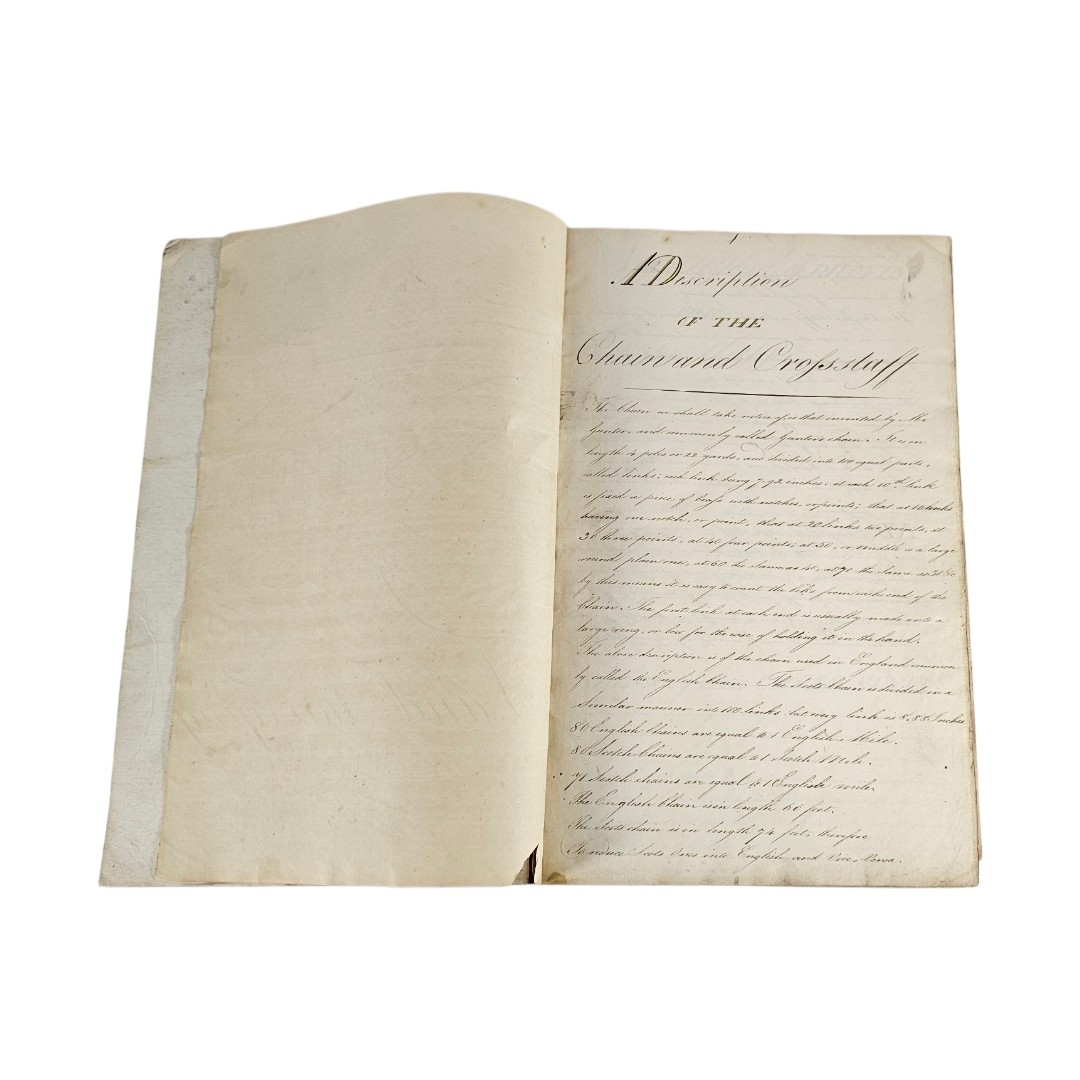 A Description
OF THE
Chain and Crossstaff
The Chain we shall take notice of is that invented by Mr
Gunter, and commonly called Gunter's chain. It is in
length 4 poles or 22 yards, and divided into 100 equal parts,
called links; each link being 7.92 inches; at each 10th link
is fixed a piece of brass with notches, or points; that at 10 links
having one notch, or point, that at 20 links two points, at
30 three points, at 40 four points; at 50, or middle is a large
round plain one, at 60 the same as 40, at 70 the same as 30 &c
by this means it is easy to count the links from each end of the
Chain. The first link at each end is usually made into a
large ring, or bow for the ease of holding it in the hand.
The above description is of the chain used in England common-
ly called the English Chain. The Scots Chain is divided in a
Similar manner into 100 links but every link is 8.88 Inches
80 English Chains are equal to 1 English Mile.
80 Scotch Chains are equal to 1 Scotch Mile.
71 Scotch chains are equal to 1 English mile.
The English Chain is in length 66 feet.
The Scots chain is in length 74 feet, therefore
To reduce Scots Acres into English and Vice Versa.